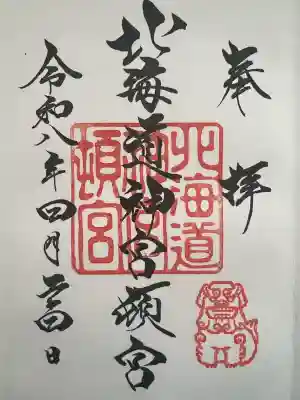 奉拝
北海道神宮頓宮
北海道
頓宮
令和八年四月 日